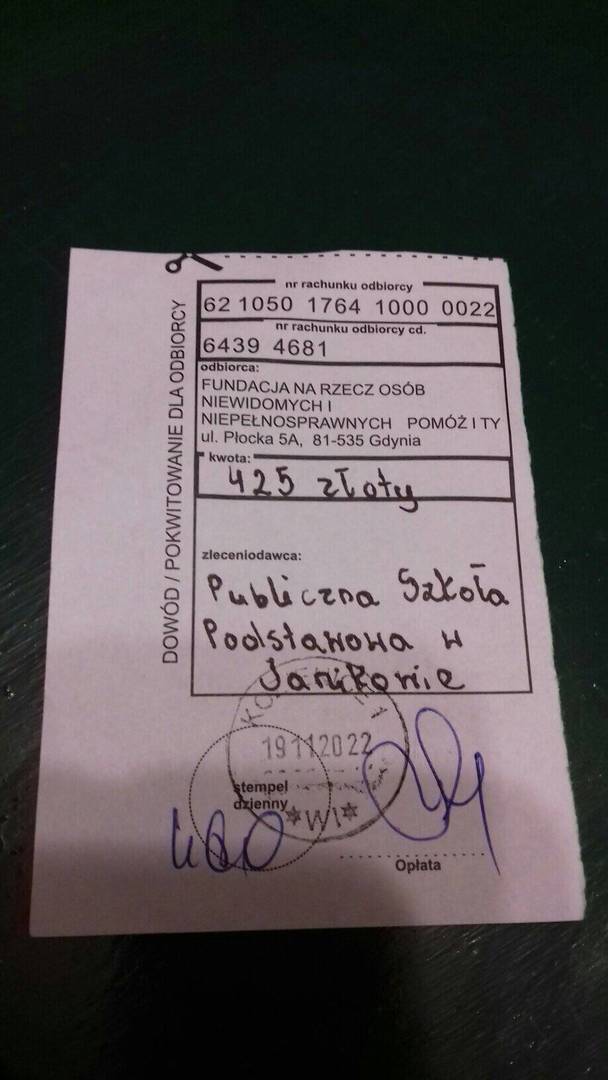 DOWÓD / POKWITOWANIE DLA ODBIORCY
nr rachunku odbiorcy
62 1050 1764 1000 0022
nr rachunku odbiorcy cd.
6439 4681
odbiorca:
FUNDACJA NA RZECZ OSÓB
NIEWIDOMYCH I
NIEPEŁNOSPRAWNYCH POMÓŻ I TY
ul. Płocka 5A, 81-535 Gdynia
kwota:
425 złoty
zleceniodawca:
Publiczna Szkoła
Podstawowa w
Janikowie
19 11 2022
stempel
dzienny
*WI*
Opłata